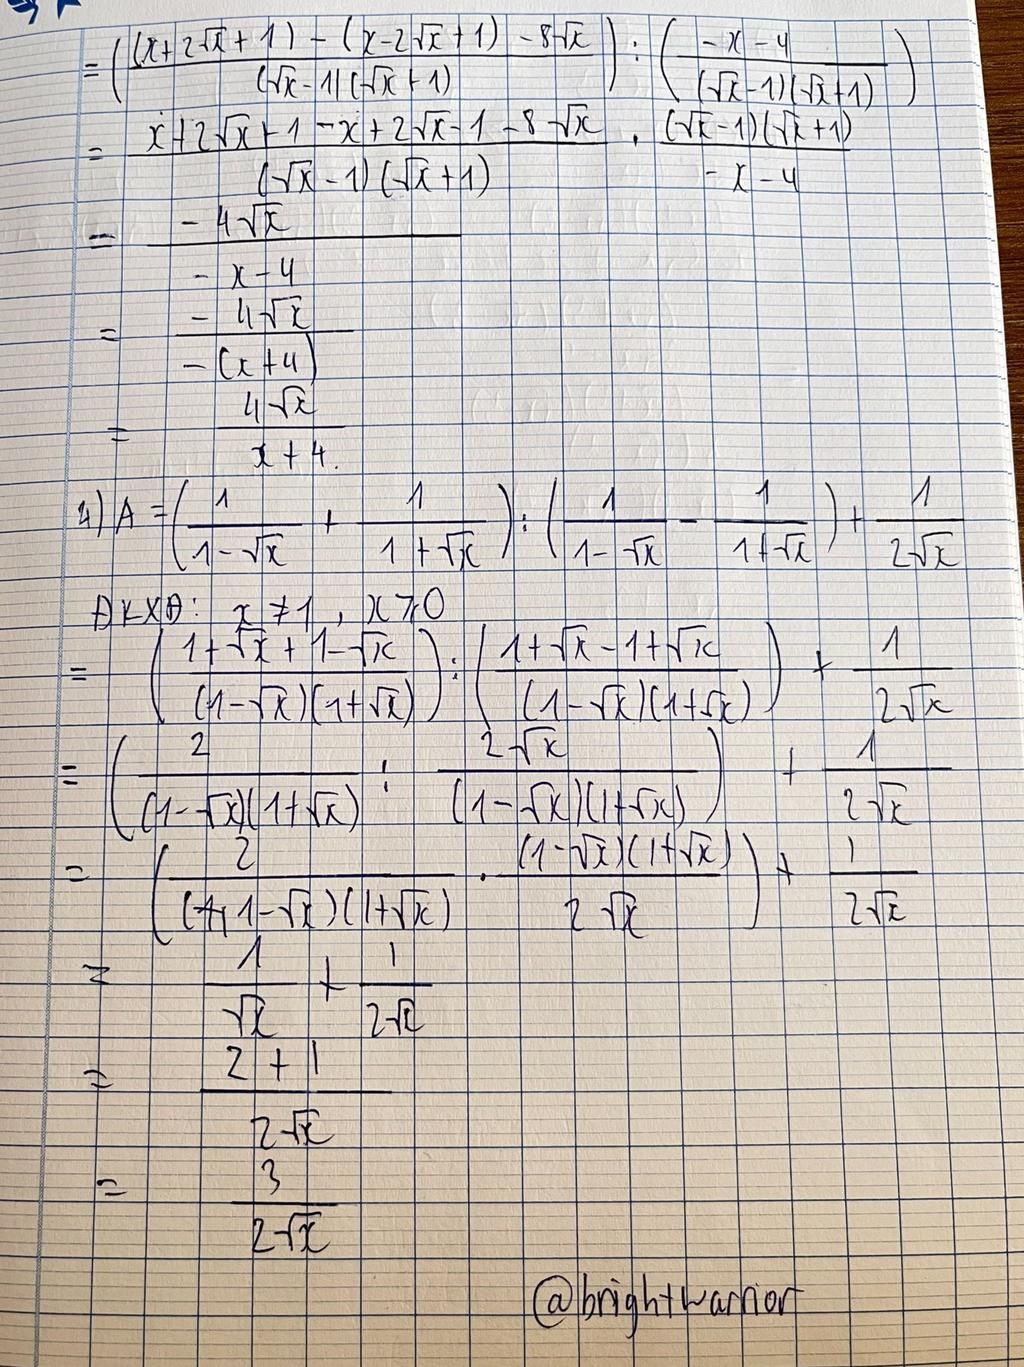 = ( ((x+2√x+1) - (x-2√x+1) - 8√x) / ((√x-1)(√x+1)) ) : ( (-x-4) / ((√x-1)(√x+1)) )
= (x+2√x+1-x+2√x-1-8√x) / ((√x-1)(√x+1)) . ((√x-1)(√x+1)) / (-x-4)
= (-4√x) / (-x-4)
= (-4√x) / (-(x+4))
= (4√x) / (x+4).
4) A = ( 1/(1-√x) + 1/(1+√x) ) : ( 1/(1-√x) - 1/(1+√x) ) + 1/(2√x)
ĐKXĐ: x ≠ 1, x ⩾ 0
= ( (1+√x+1-√x) / ((1-√x)(1+√x)) ) : ( (1+√x-1+√x) / ((1-√x)(1+√x)) ) + 1/(2√x)
= ( 2 / ((1-√x)(1+√x)) : 2√x / ((1-√x)(1+√x)) ) + 1/(2√x)
= ( 2 / ((1-√x)(1+√x)) . ((1-√x)(1+√x)) / (2√x) ) + 1/(2√x)
= 1/√x + 1/(2√x)
= (2+1) / (2√x)
= 3 / (2√x)
@brightwarrior